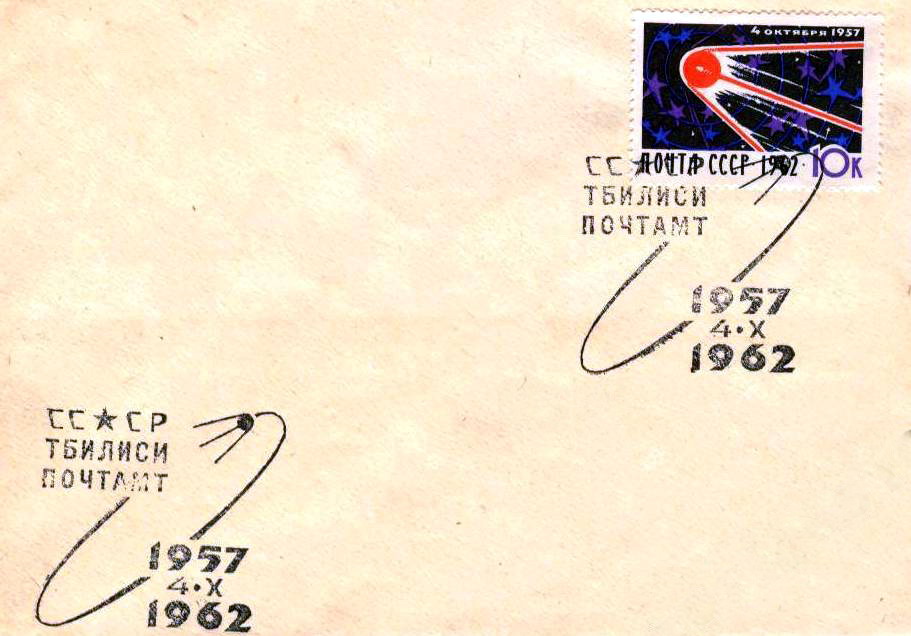 4 ОКТЯБРЯ 1957
ПОЧТА СССР 1962 10К
СС★СР
ТБИЛИСИ
ПОЧТАМТ
1957
4·X
1962
СС★СР
ТБИЛИСИ
ПОЧТАМТ
1957
4·X
1962